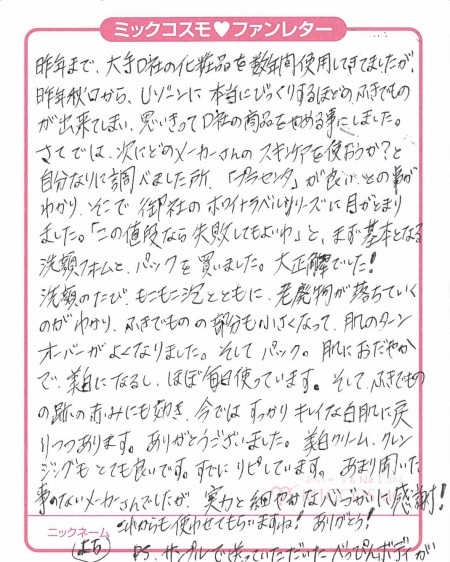 ミックコスモ♥ファンレター
昨年まで、大手D社の化粧品を数年間使用してきてましたが、
昨年秋口から、Uゾーンに本当にびっくりするほどの、ふきでもの
が出来てしまい、思いきってD社の商品をやめる事にしました。
さてでは、次にどのメーカーさんのスキンケアを使おうか?と
自分なりに調べました所、「プラセンタ」が良い、との事が
わかり、そこで御社のホワイトラベルシリーズに目がとまり
ました。「この値段なら失敗してもよいわ」と、まず基本となる
洗顔フォームと、パックを買いました。大正解でした!
洗顔のたび、もこもこ泡とともに、老廃物が落ちていく
のがわかり、ふきでものの部分も小さくなって、肌のターン
オーバーがよくなりました。そしてパック。肌におだやか
で、美白になるし、ほぼ毎日使っています。そして、ふきでもの
の跡の赤みにも効き、今ではすっかりキレイな白肌に戻
りつつあります。ありがとうございました。美白クリーム、クレン
ジングもとても良いです。すでにリピしています。あまり聞いた
事のないメーカーさんでしたが、実力と細やかな心づかいに感謝!
これからも使わせてもらいますね!ありがとう!
ニックネーム
P.S. サンプルで送っていただいたべっぴんボディが